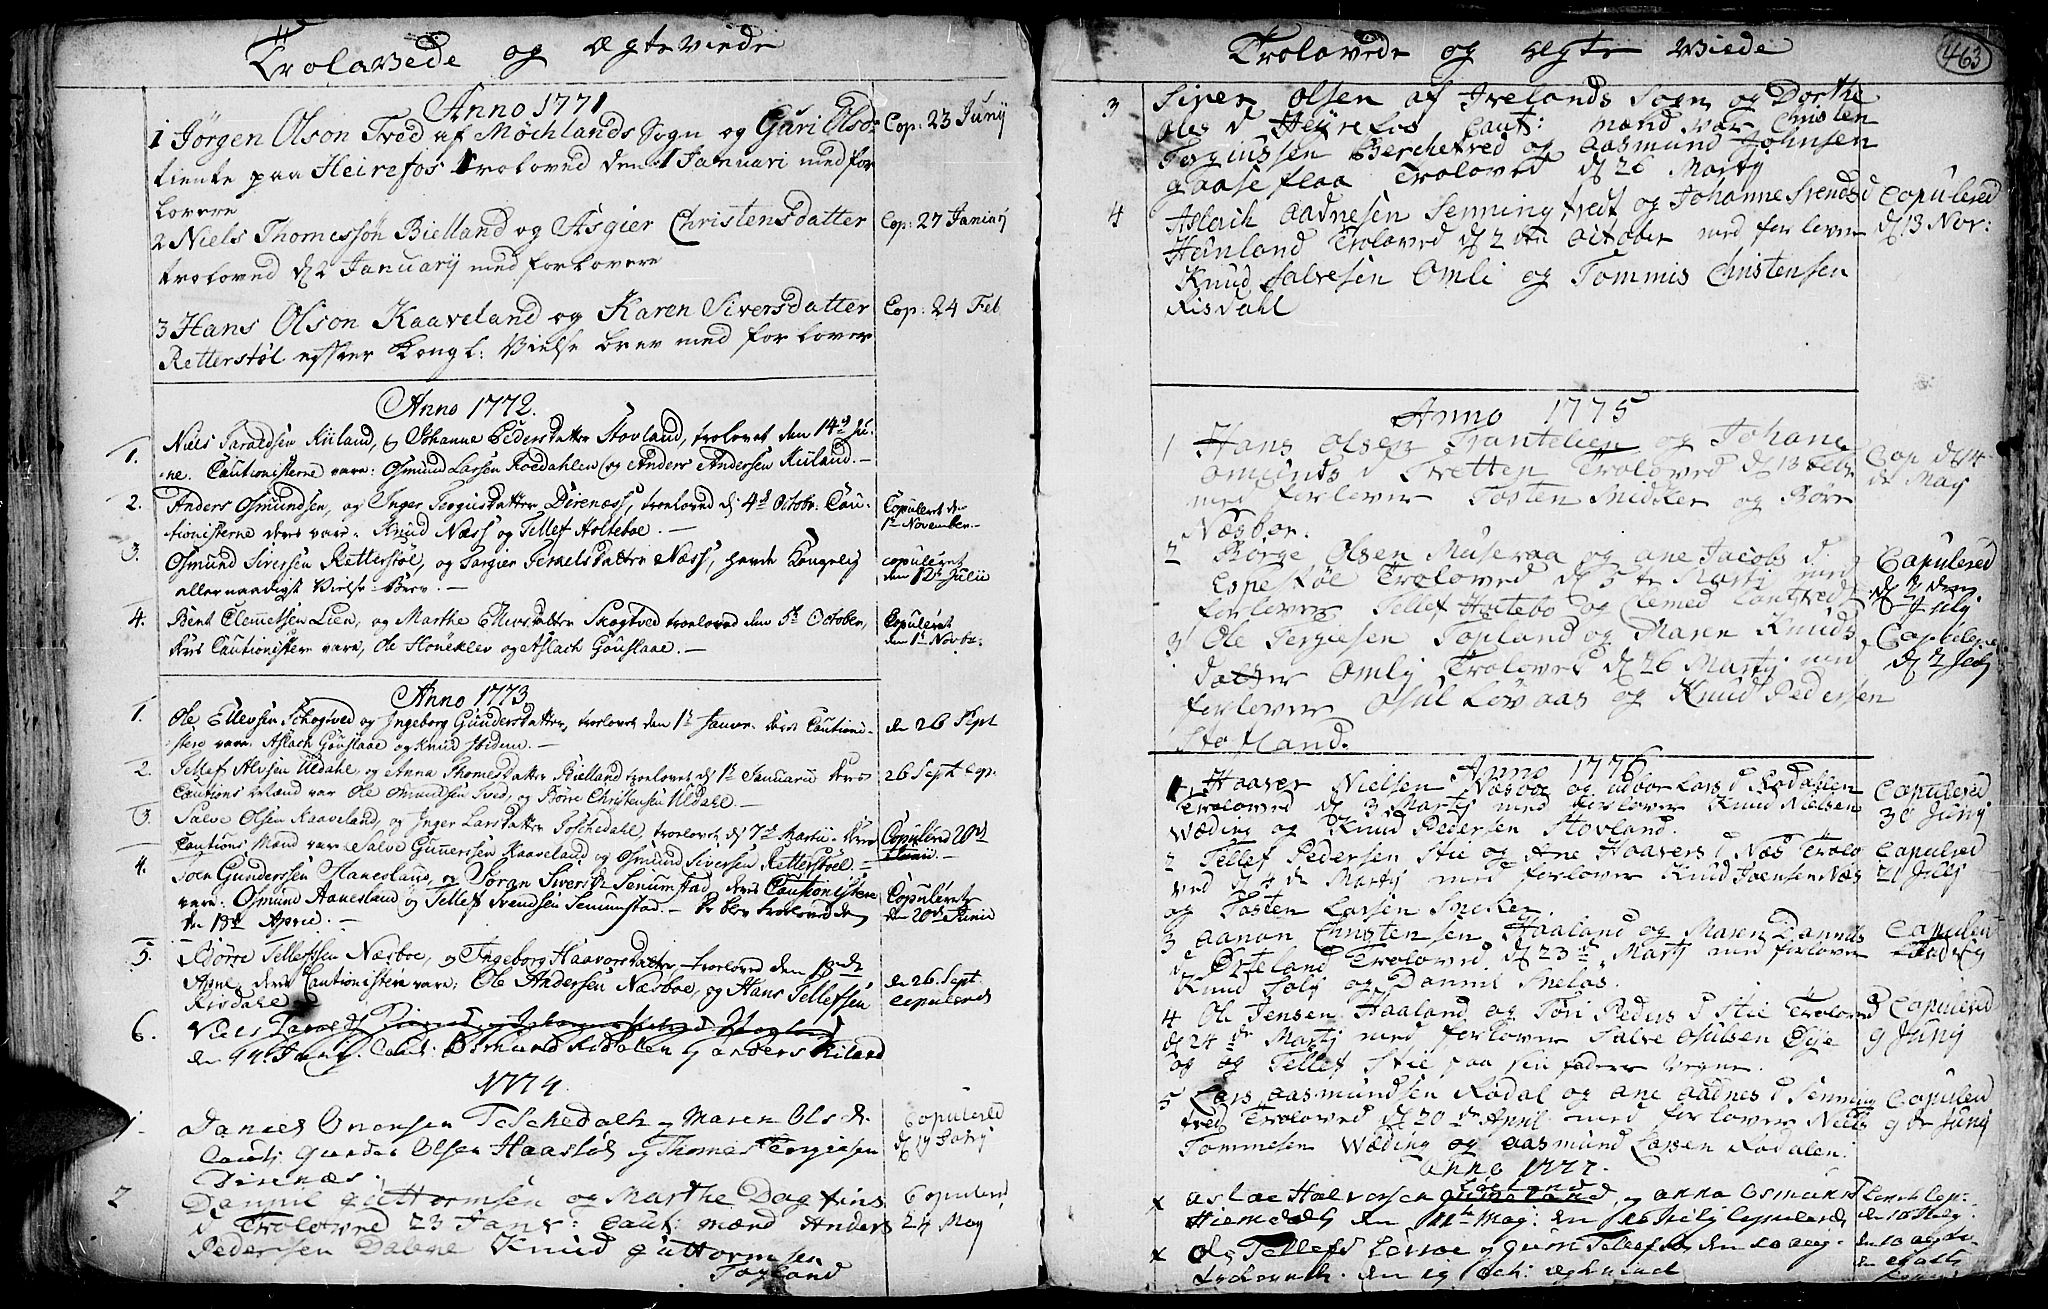 Trolovede og Ægteviede
Anno 1771
1 Jörgen Olson Tved af Mochlands Sogn og Guri Ols
tiente paa Heirefos troloved den 1 Januari med for
lovere
Cop: 23 Junij
2 Niels Thomesson Bielland og Asgier Christensdatter
troloved d 2 Januarij med forlovere
Cop: 27 Janiarij
3 Hans Olson Kaaveland og Karen Siversdatter
Retterstöl efter Kongl: Vielse brev med forlover
Cop: 24 Feb
Anno 1772.
1. Niels Taraldsen Kiiland, og Johanne Pedersdatter Stovland, trolovet den 14de Ju-
ne. Cautionisterne vare: Osmund Larsen Roedahlen og Anders Andersen Kiiland.-
2. Anders Osmundsen, og Inger Tergiesdatter Direnæss, troeloved d 4de Octobr. Cau-
tionisterne deres vare: Knud Næss og Tellef Holteboe.-
Copuleret den
1te November.-
3. Osmund Siversen Retterstöl, og Sergier Teraldsdatter Næss, havde Kongelig
allernaadigst Vielse-Brev.-
copuleret
den 12te Julii
4. Bent Clemetsen Lien, og Marthe Ellevsdatter Skogtved troeloved den 5te October,
deres Cautionister vare, Ole Honeklev og Aslach Gouslaae.-
Copuleret
den 1te Novbr:
Anno 1773
1. Ole Ellevsen Schogtved og Ingeborg Gundersdatter, trolovet den 1te Januar. deres Cautioni-
stere vare: Aslach Gouslaae og Knud
den 26 Sept
2. Tellef Alvsen Uldahl, og Anna Thomesdatter Bielland troelovet d 1te Januarii deres
Cautions Mænd var Ole Osmundsen Tved, og Börre Christensen Uldale.-
26 Sept Cop.
3. Salve Olsen Kaaveland, og Inger Larsdatter Toschedahl, troelovet d 7de Martii. deres
Cautions Mænd vare Salve Gunnersen Kaaveland og Osmund Siversen Retterstoel.-
Copulered 20de
Junii.-
4. Joen Gundersen Haneslang, og Jöran Siversd: Senumstad, deres Cautionister
vare: Osmund Hanesland og Tellef Svendsen Senumstad.- De blev troeloved den
den 18de April.-
Copuleret
den 20de Junii
5. Börre Tellefsen Næsboe, og Ingeborg Haavorsdatter troeloved den 18de
deres Cautionister vare: Ole Andersen Næsboe, og Hans Tellefsen
Risdahl
den 26 Sept.
Copulered
6. Niels
den 14 Junij. Caut: Osmund Rodalen og Anders Kiland
1774.
1 Daniel Toschedalh og Maren Ols d.
Caut: Gunder Olsen Haastöl og Thomes Tergiesen
Direnæs.
Copulered
2 Daniel Guttormsen og Marthe Dagfins
d Troloved 23 Janv: Caut: mænd Anders
Pedersen Dalene Knud Guttormsen
Topland
Copulered
24 Maij
463
Trolovede og ægte Viede
3 Siver Olsen af Irelands Sogn og Dorthe
Oles d Heÿrefos Caut: mænd var Christen
Tergiussen Berchetved og Aasmund Johnsen
gaaseflaa Troloved d 26 Martij
4 Aslach Aadnesen Senningtvedt og Johanne Svends d
Haanland Troloved d 2den October med forlover
Knud Salvesen Omli og Tommis Christensen
Risdahl
Copulered
d 13 Nov:
Anno 1775
1 Hans Olsen Trantelien og Johane
Omunds d Tvetten Troloved d 13 Febr
med forlover Tosten Snidker og Börr
Næsboe.
Cop d 14
de Maij
2 Börge Olsen Museraa og ane Jacobs d.
Espestöl Troloved d 5te Martij med
forlover Tellef Holtebo og Clemed
Copulered
d 2 den
Julij
3 Ole Tergiesen Topland og Maren Knuds
datter Omlij Troloved d 26 Martij med
forlover Osul Lövaas og Knud Pedersen
Stofland.
Copulered
d 2 Julij
Anno 1776
1 Haaver Nielsen Næsboe og Lars d Rodahlen
Troloved d 3 Martij med forlover Knud Nielsen
Wæding og Knud Pedersen Stovland.
Copulered
30 Junij
2 Tellef Pedersen Stie og Ane Haavers d Næs Trolo
ved d 4de Martij med forlover Knud Joensen Næs
og Tosten Larsen Sneker.
Copulered
21 Julij
3 Aanon Christensen Haaland og Maren Daniels
d Öÿeland Troloved d 23de Martij med forlover
Knud Solij og Daniel Snelös.
4 Ole Jensen Haaland og Töri Peders d Stie Troloved
d 24de Martij med forlover Salve Osulsen Öÿe
og og Tellef Stie paa sin faders Vegne.
Copulered
9 Junij
5 Lars Aasmundsen Rodal og ane Aadnes d Senning
tved Troloved d 20de April med forlover Niels
Tommesen Wæding og Aasmund Larsen Rodalen.
Copulered
9 de Junij
Anno 1777.
x Aslae Halvorsen og Anna Osmunds
den 11te Maij: den Copulered
x Ole Tellefs og Guni Tellefs den 10 aug.